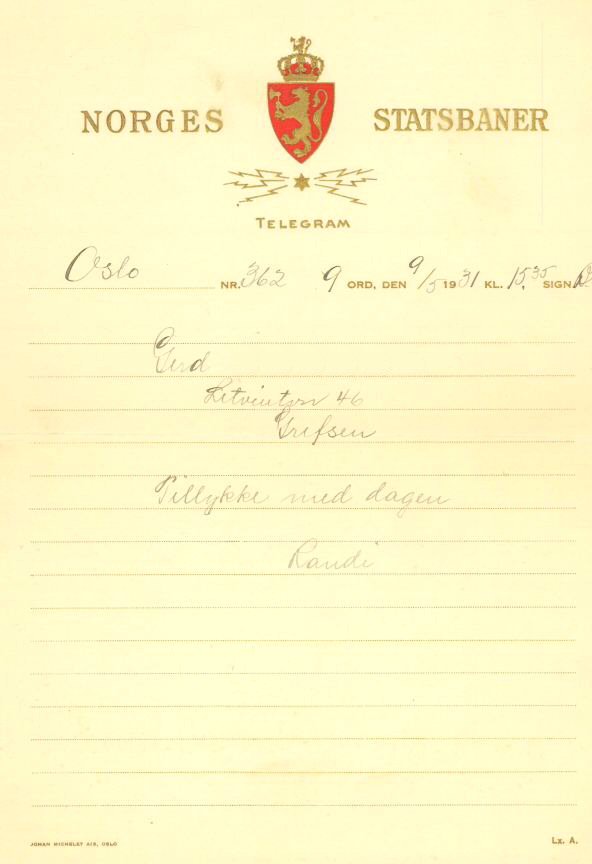 NORGES STATSBANER
TELEGRAM
Oslo NR. 362 9 ORD, DEN 9/5 1931 KL. 15.35 SIGN.
Gerd
46
Grefsen
Tillykke med dagen
Randi
JOHAN MICHELET A/S, OSLO Lx. A.